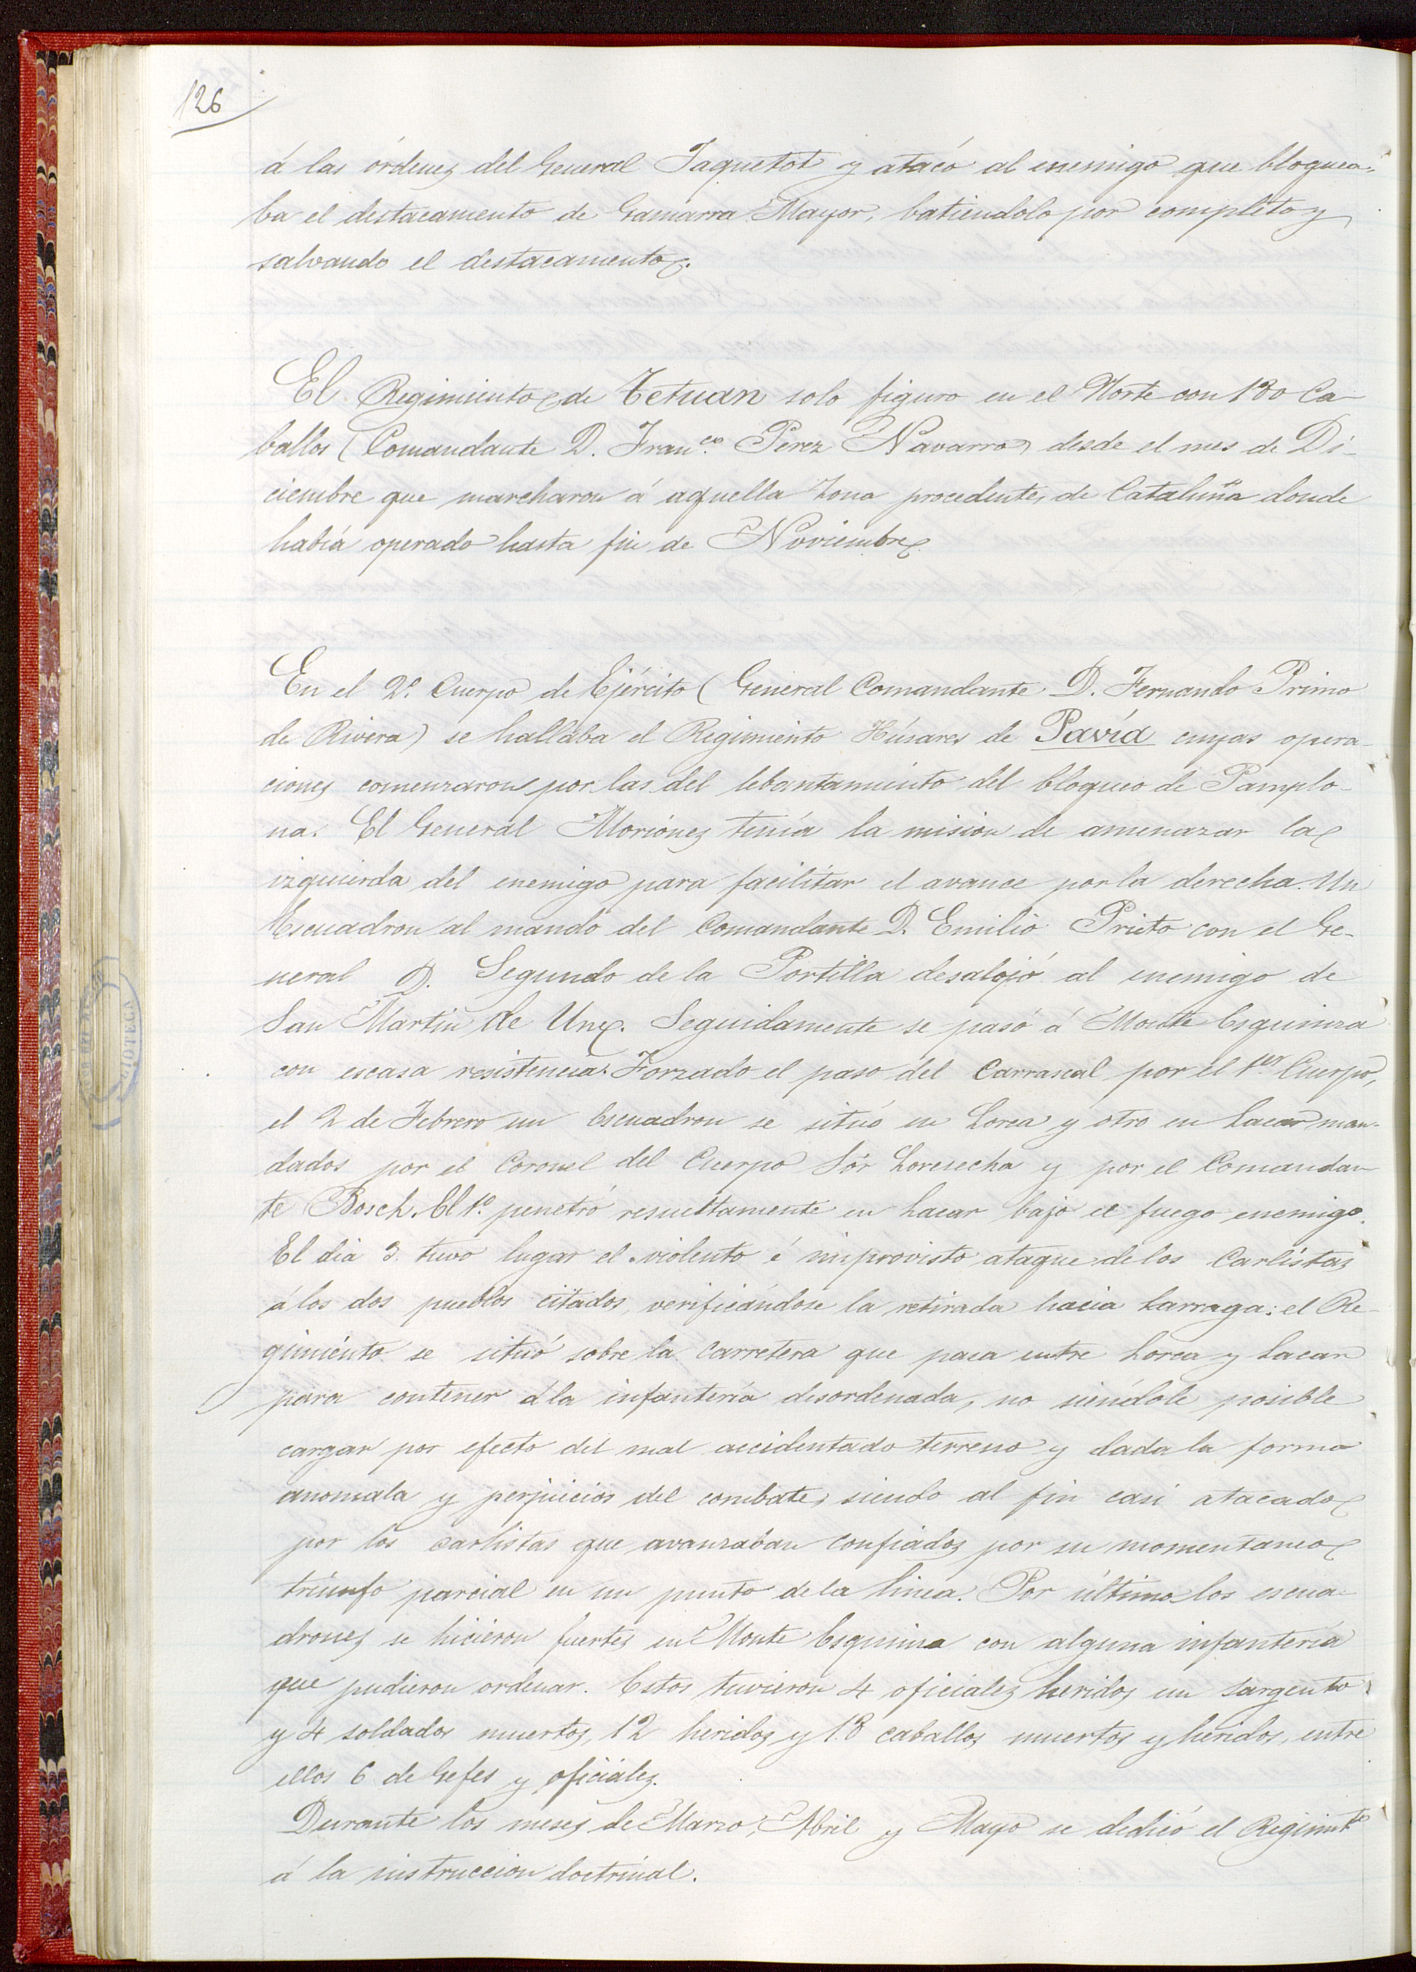 126
á las órdenes del General Jaquetot y atacó al enemigo que bloquea-
ba el destacamento de Gamarra Mayor, batiendolo por completo y
salvando el destacamento.
El Regimiento de Tetuan solo figuro en el Norte con 130 Ca-
ballos (Comandante D. Fran.co Perez Navarro) desde el mes de Di-
ciembre que marcharon á aquella zona procedentes de Cataluña donde
habiá operado hasta fin de Noviembre
En el 2º Cuerpo de Ejército (General Comandante D. Fernando Primo
de Rivera) se hallaba el Regimiento Húsares de Pavía cuyas opera-
ciones comenzaron por las del lebantamiento del bloqueo de Pamplo-
na. El General Moriónes tenía la mision de amenazar la
izquierda del enemigo para facilitar el avance por la derecha. Un
Escuadron al mando del Comandante D. Emilio Prieto con el Ge-
neral D. Segundo de la Portilla desalojó al enemigo de
San Martin de Unx. Seguidamente se pasó á Monte Esquinza
con escasa resistencia. Forzado el paso del Carrascal por el 1er Cuerpo,
el 2 de Febrero un Escuadron se situó en Lorca y otro en Lacar man-
dados por el Coronel del Cuerpo Sór Loresecha y por el Comandan-
te Bosch. El 1º penetró resueltamente en Lacar bajo el fuego enemigo.
El dia 3 tuvo lugar el violento é improvisto ataque de los Carlistas
á los dos pueblos citados verificándose la retirada hacia Larraga: el Re-
gimiento se situó sobre la Carretera que pasa entre Lorca y Lacar
para contener á la infantería desordenada, no siendole posible
cargar por efecto del mal accidentado terreno y dada la forma
anomala y perjuicios del combate, siendo al fin casi atacado
por los carlistas que avanzaban confiados por su momentaneo
triunfo parcial en un punto de la linea. Por último los escua-
drones se hicieron fuertes en Monte Esquinza con alguna infantería
que pudieron ordenar. Estos tuvieron 4 oficiales heridos un sargento
y 4 soldados muertos, 12 heridos y 18 caballos muertos y heridos, entre
ellos 6 de Gefes y oficiales.
Durante los meses de Marzo, Abril y Mayo se dedicó el Regimto
á la instruccion doctrinal.